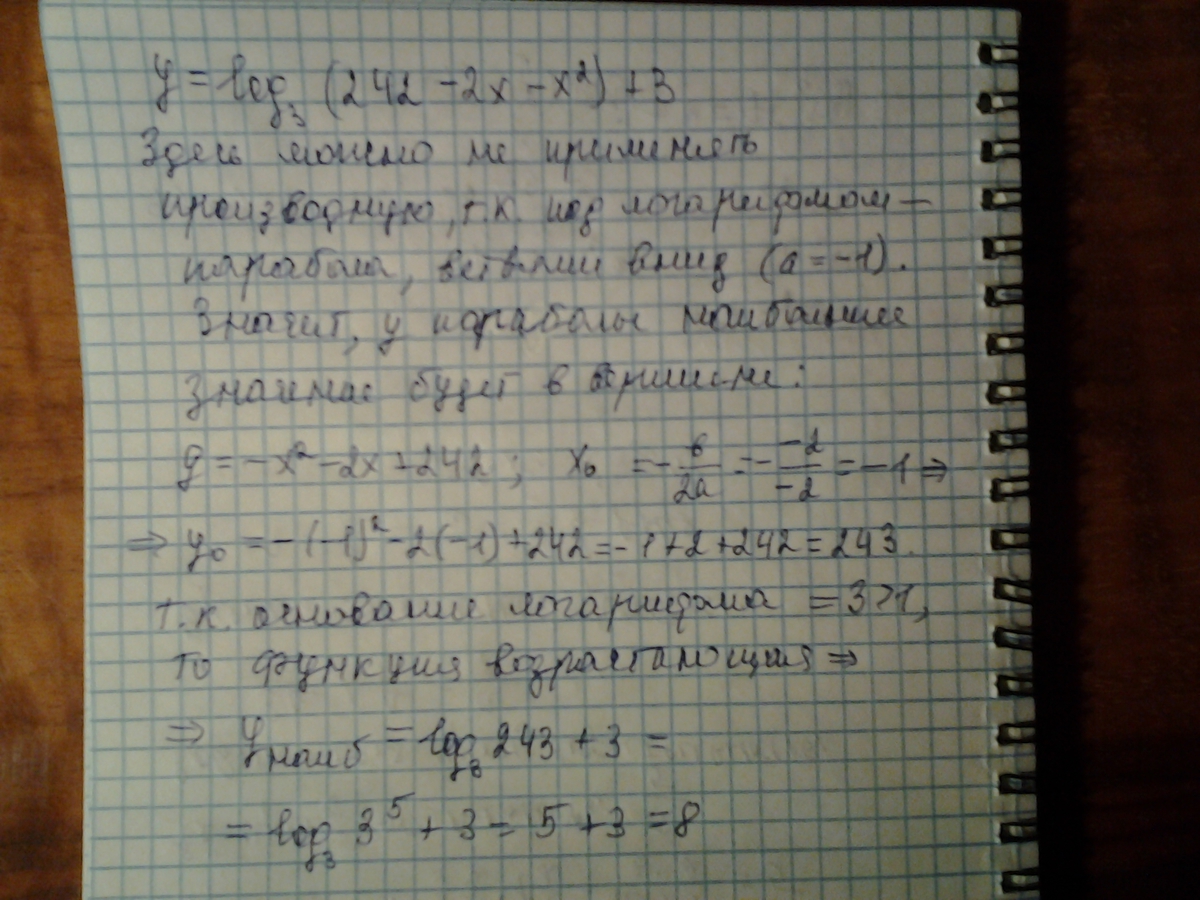 y = log₃ (242 - 2x - x²) + 3
Здесь можно не применять
производную, т.к. под логарифмом —
парабола, ветвями вниз (a = -1).
Значит, у параболы наибольшее
значение будет в вершине:
y = -x² - 2x + 242 ; x₀ = - в/2a = - -2/-2 = -1 ⇒
⇒ y₀ = -(-1)² - 2(-1) + 242 = -1 + 2 + 242 = 243.
т.к. основание логарифма = 3 > 1,
то функция возрастающая ⇒
⇒ yнаиб = log₃ 243 + 3 =
= log₃ 3⁵ + 3 = 5 + 3 = 8